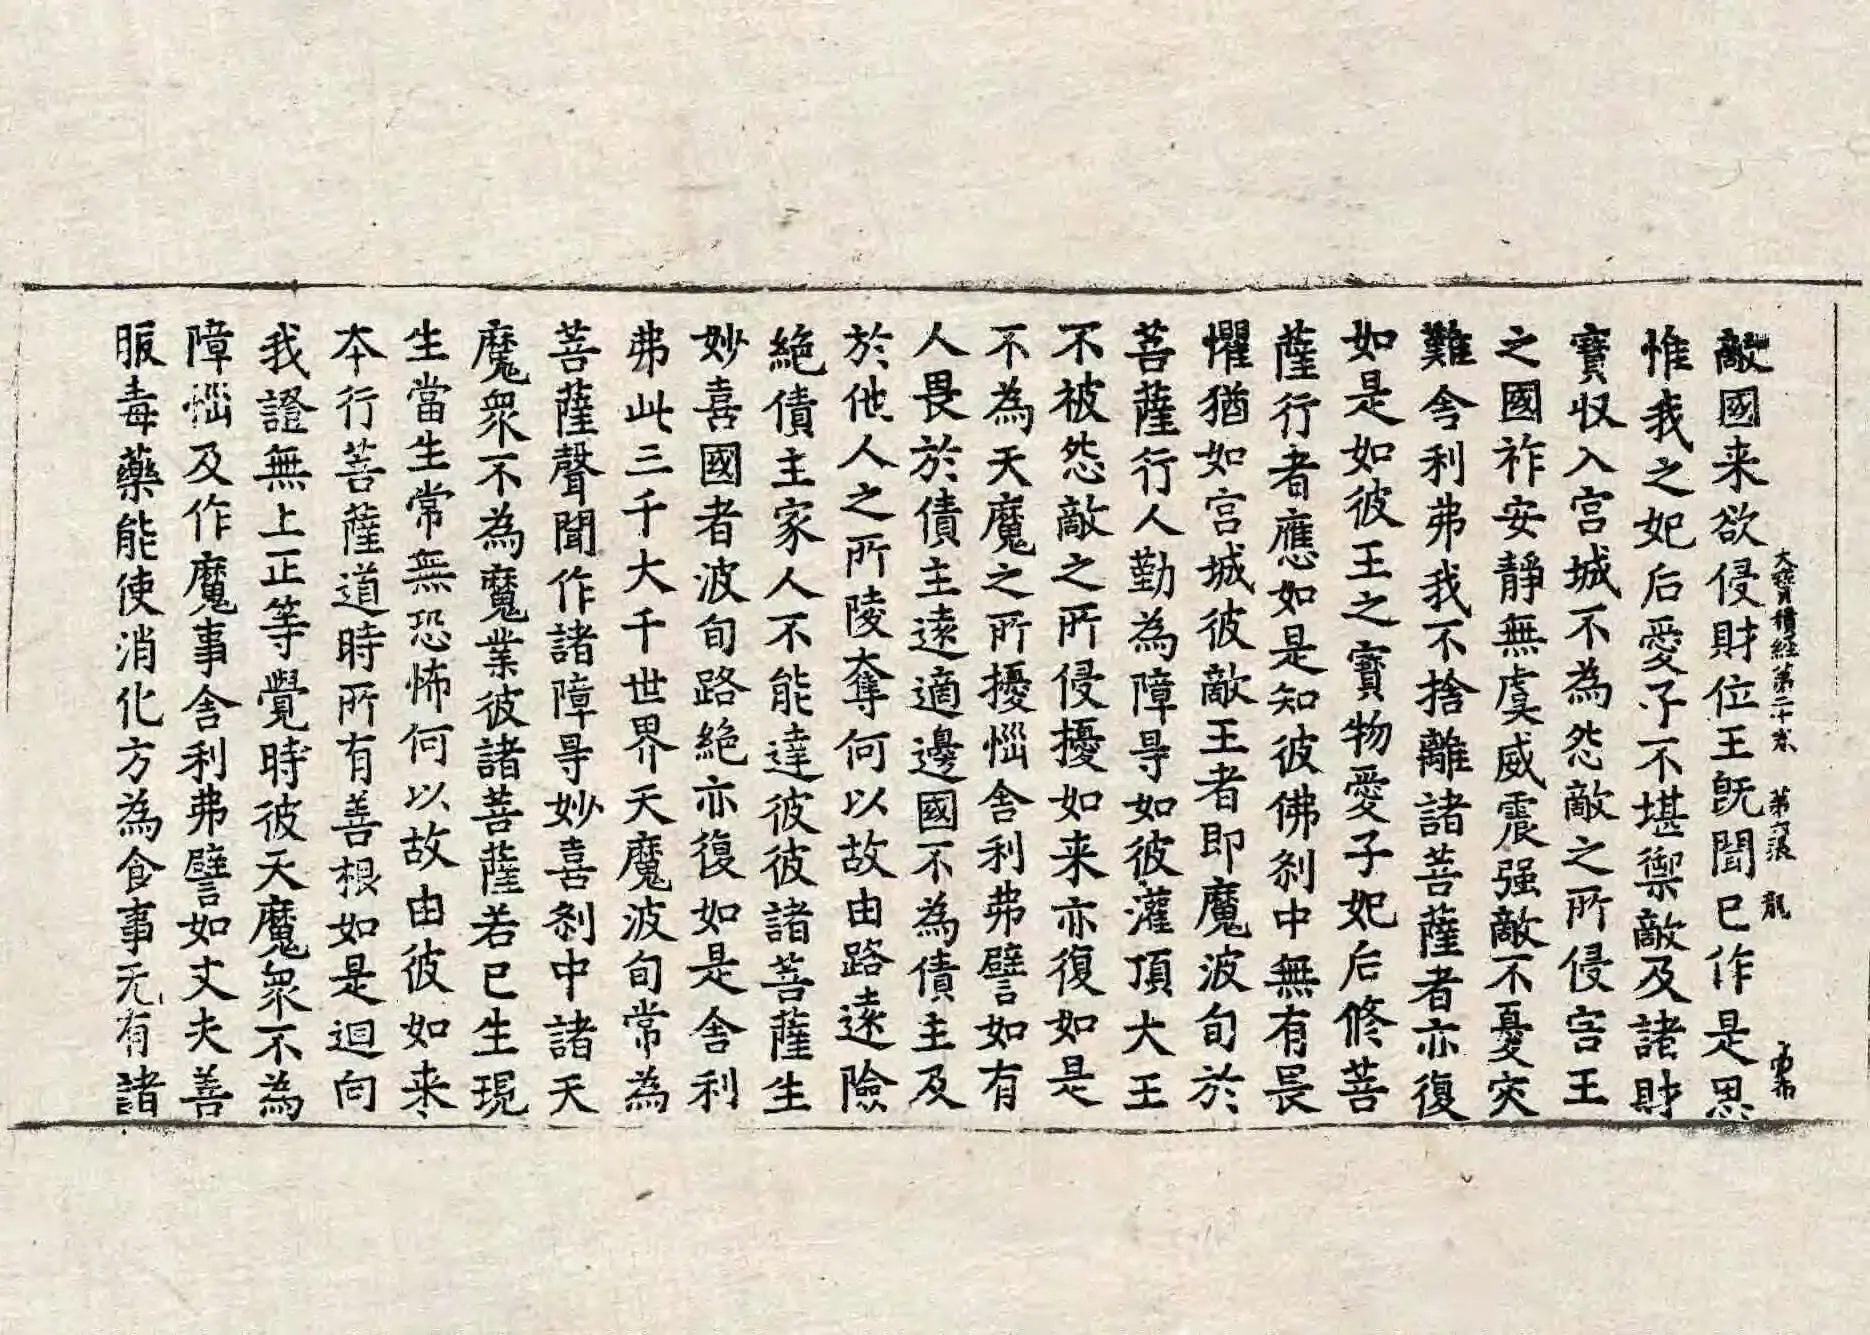 大寶積經第二十卷 第 張 龍
敵國来欲侵財位王旣聞已作是思
惟我之妃后愛子不堪禦敵及諸財
寶収入宫城不為怨敵之所侵害王
之國祚安靜無虞威震强敵不憂灾
難舎利弗我不捨離諸菩薩者亦復
如是如彼王之寶物愛子妃后修菩
薩行者應如是知彼佛刹中無有畏
懼猶如宫城彼敵王者即魔波旬於
菩薩行人勤為障㝵如彼灌頂大王
不被怨敵之所侵擾如来亦復如是
不為天魔之所擾惱舎利弗譬如有
人畏於債主遠適邊國不為債主及
於他人之所陵奪何以故由路遠險
絶債主家人不能達彼彼諸菩薩生
妙喜國者波旬路絶亦復如是舎利
弗此三千大千世界天魔波旬常為
菩薩聲聞作諸障㝵妙喜刹中諸天
魔衆不為魔業彼諸菩薩若已生現
生當生常無恐怖何以故由彼如来
本行菩薩道時所有善根如是迴向
我證無上正等覺時彼天魔衆不為
障惱及作魔事舎利弗譬如丈夫善
服毒藥能使消化方為食事无有諸